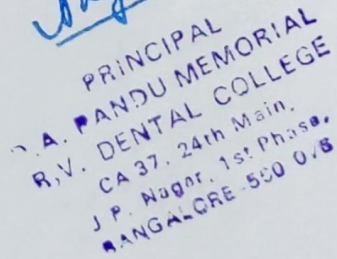 PRINCIPAL
D.A. PANDU MEMORIAL
R.V. DENTAL COLLEGE
CA 37, 24th Main,
J P. Nagar, 1st Phase,
BANGALORE - 560 078